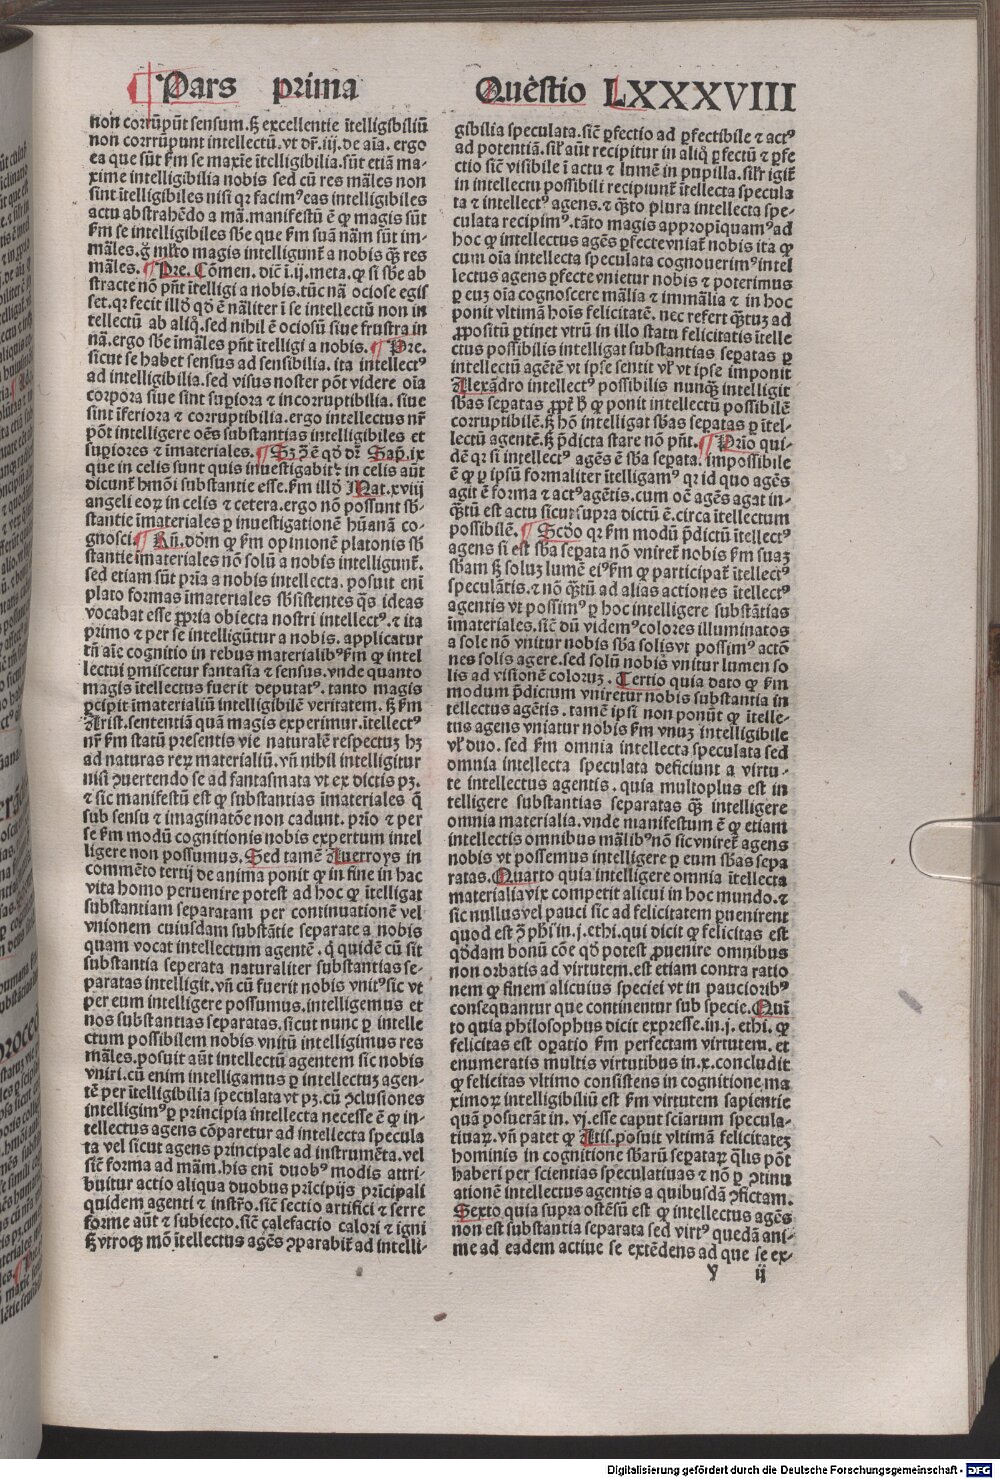 Pars prima Questio LXXXVIII
non corrūpūt sensum. sꝫ excellentie ītelligibiliū
non corrūpunt intellectū. vt dr̄. iij. de aīa. ergo
ea que sūt ẜm se maxīe ītelligibilia. sūt etiā ma-
xime intelligibilia nobis sed cū res māles non
sint ītelligibiles nisi qꝛ facimꝰ eas intelligibiles
actu abstrahēdo a mā. manifestū ē ꝙ magis sūt
ẜm se intelligibiles sbe que ẜm suā nām sūt im-
māles. gͦ mlto magis intelligunt̄ a nobis qꝫ res
māles. ¶ Pre. Cōmen. dic̄ ī. ij. meta. ꝙ si sbe ab
stracte nō pn̄t ītelligi a nobis. tūc nā ociose egis
set. qꝛ fecit illd̄ qd̄ ē nāliter ī se intellectū non in
tellectū ab aliq̄. sed nihil ē ociosū siue frustra in
nā. ergo sbe īmāles pn̄t ītelligi a nobis. ¶ Pre.
sicut se habet sensus ad sensibilia. ita intellectꝰ
ad intelligibilia. sed visus noster pōt videre oīa
corpora siue sint suꝑiora ⁊ incorruptibilia. siue
sint īferiora ⁊ corruptibilia. ergo intellectus nr̄
pōt intelligere oēs substantias intelligibiles et
suꝑiores ⁊ īmateriales. ¶ Sꝫ ꝯ̄ ē qd̄ dr̄ Sap̄. ix
que in celis sunt quis inuestigabit: in celis aūt
dicunt̄ hmōi substantie esse. ẜm illd̄ Mat. xviij
angeli eoꝝ in celis ⁊ cetera. ergo nō possunt sb-
stantie īmateriales ꝑ inuestigationē hūanā co-
gnosci. ¶ Rn̄. dd̄m ꝙ ẜm opinionem platonis sb
stantie īmateriales nō solū a nobis intelligunt̄.
sed etiam sūt prīa a nobis intellecta. posuit enī
plato formas īmateriales sbsistentes q̄s ideas
vocabat esse ꝓpria obiecta nostri intellectꝰ. ⁊ ita
primo ⁊ per se intelligūtur a nobis. applicatur
tn̄ aīe cognitio in rebus materialibꝰ ẜm ꝙ intel
lectui ꝑmiscetur fantasia ⁊ sensus. vnde quanto
magis ītellectus fuerit depuratꝰ. tanto magis
ꝑcipit īmaterialiū intelligibilē veritatem. sꝫ ẜm
Arist. sententiā quā magis experimur. ītellectꝰ
nr̄ ẜm statū presentis vie naturalē respectuꝫ hꝫ
ad naturas reꝝ materialiū. vn̄ nihil intelligitur
nisi ꝯuertendo se ad fantasmata vt ex dictis pꝫ.
⁊ sic manifestū est ꝙ substantias īmateriales q̄
sub sensu ⁊ imaginatōe non cadunt. prīo ⁊ per
se ẜm modū cognitionis nobis expertum intel
ligere non possumus. Sed tamē Auerroys in
commēto tertij de anima ponit ꝙ in fine in hac
vita homo peruenire potest ad hoc ꝙ ītelligat
substantiam separatam per continuationē vel
vnionem cuiusdam substātie separate a nobis
quam vocat intellectum agentē. q̄ quidē cū sit
substantia seperata naturaliter substantias se-
paratas intelligit. vn̄ cū fuerit nobis vnitꝰ sic vt
per eum intelligere possumus. intelligemus et
nos substantias separatas. sicut nunc ꝑ intelle
ctum possibilem nobis vnitū intelligimus res
māles. posuit aūt intellectū agentem sic nobis
vniri. cū enim intelligamus ꝑ intellectuꝫ agen-
tē per ītelligibilia speculata vt pꝫ. cū ꝯclusiones
intelligimꝰ ꝑ principia intellecta necesse ē ꝙ in-
tellectus agens cōparetur ad intellecta specula
ta vel sicut agens principale ad instrumēta. vel
sic̄ forma ad mām. his enī duobꝰ modis attri-
buitur actio aliqua duobus prīcipijs prīcipali
quidem agenti ⁊ instr̄o. sic̄ sectio artifici ⁊ serre
forme aūt ⁊ subiecto. sic̄ calefactio calori ⁊ igni
sꝫ vtroqꝫ mō ītellectus agēs ꝯparabit̄ ad intelli-
gibilia speculata. sic̄ ꝑfectio ad ꝑfectibile ⁊ actꝰ
ad potentiā. sil̄ aūt recipitur in aliq̄ ꝑfectū ⁊ ꝑfe
ctio sic̄ visibile ī actu ⁊ lumē in pupilla. sil̄r igit̄
in intellectu possibili recipiunt̄ ītellecta specula
ta ⁊ intellectꝰ agens. ⁊ qꝫto plura intellecta spe-
culata recipimꝰ. tāto magis appropīquamꝰ ad
hoc ꝙ intellectus agēs ꝑfecte vniat̄ nobis ita ꝙ
cum oīa intellecta speculata cognouerimꝰ intel
lectus agens ꝑfecte vnietur nobis ⁊ poterimus
ꝑ euꝫ oīa cognoscere mālia ⁊ immālia ⁊ in hoc
ponit vltimā hoīs felicitatē. nec refert qꝫtuꝫ ad
ꝓpositū ꝑtinet vtrū in illo statu felicitatis ītelle
ctus possibilis intelligat substantias seꝑatas ꝑ
intellectū agētē vt ipse sentit vl̄ vt ipse imponit
Alexādro intellectꝰ possibilis nunqꝫ intelligit
sbas seꝑatas ꝓpt̄ h ꝙ ponit intellectū possibilē
corruptibilē. sꝫ hō intelligat sbas seꝑatas ꝑ ītel-
lectū agentē. sꝫ p̄dicta stare nō pn̄t. ¶ Prīo qui-
dē qꝛ si intellectꝰ agēs ē sba seꝑata. impossibile
ē ꝙ ꝑ ipsū formaliter ītelligamꝰ qꝛ id quo agēs
agit ē forma ⁊ actꝰ agētis. cum oē agēs agat in-
qꝫtū est actu sicut supra dictū ē. circa ītellectum
possibilē. ¶ Scd̄o qꝛ ẜm modū p̄dictū ītellectꝰ
agens si est sba seꝑata nō vniret̄ nobis ẜm suaꝫ
sbam sꝫ soluꝫ lumē eiꝰ ẜm ꝙ participat̄ ītellectꝰ
speculātis. ⁊ nō qꝫtū ad alias actiones ītellectꝰ
agentis vt possimꝰ ꝑ hoc intelligere substātias
īmateriales. sic̄ dū videmꝰ colores illuminatos
a sole nō vnitur nobis sba solis vt possimꝰ actō
nes solis agere. sed solū nobis vnitur lumen so
lis ad visionē coloruꝫ. Tertio quia dato ꝙ ẜm
modum p̄dictum vniretur nobis substantia in
tellectus agētis. tamē ipsi non ponūt ꝙ ītelle-
tus agens vniatur nobis ẜm vnuꝫ intelligibile
vl̄ duo. sed ẜm omnia intellecta speculata sed
omnia intellecta speculata deficiunt a virtu-
te intellectus agentis. quia multoplus est in
telligere substantias separatas qꝫ intelligere
omnia materialia. vnde manifestum ē ꝙ etiam
intellectis omnibus mālibꝰ nō sic vniret̄ agens
nobis vt possemus intelligere ꝑ eum sbas sepa
ratas. Quarto quia intelligere omnia ītellecta
materialia vix competit alicui in hoc mundo. ⁊
sic nullus vel pauci sic ad felicitatem ꝑuenirent
quod est ꝯ̄ phm in. j. ethi. qui dicit ꝙ felicitas est
qd̄dam bonū cōe qd̄ potest ꝓuenire omnibus
non orbatis ad virtutem. est etiam contra ratio
nem ꝙ finem alicuius speciei vt in pauciorībꝰ
consequantur que continentur sub specie. Quī
to quia philosophus dicit expresse. in. j. ethi. ꝙ
felicitas est oꝑatio ẜm perfectam virtutem. et
enumeratis multis virtutibus in. x. concludit
ꝙ felicitas vltimo consistens in cognitione ma
ximoꝝ intelligibiliū est ẜm virtutem sapientie
quā posuerāt in. vj. esse caput sciarum specula-
tiuaꝝ. vn̄ patet ꝙ Aris. posuit vltimā felicitateꝫ
hominis in cognitione sbarū seꝑataꝝ q̄lis pōt
haberi per scientias speculatiuas ⁊ nō ꝑ ꝯtinu
ationē intellectus agentis a quibusdā ꝯfictam.
Sexto quia supra ostēsū est ꝙ intellectus agēs
non est substantia separata sed virtꝰ quedā ani-
me ad eadem actiue se extēdens ad que se ex-
y ij
Digitalisierung gefördert durch die Deutsche Forschungsgemeinschaft - DFG